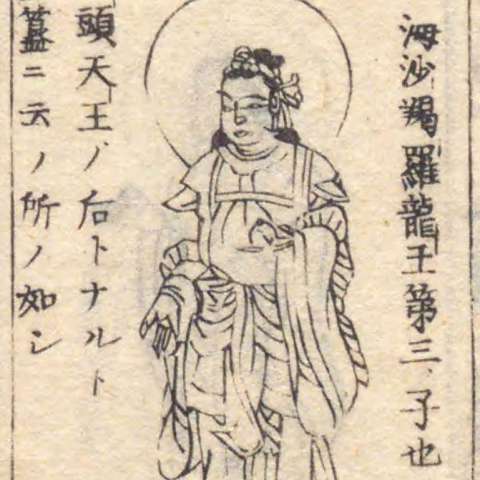 海沙羯羅龍王第三ノ子也
頭天王ノ后トナルト
簋ニ云ノ所ノ如シ